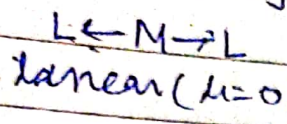 L←M→L
Linear (μ=0